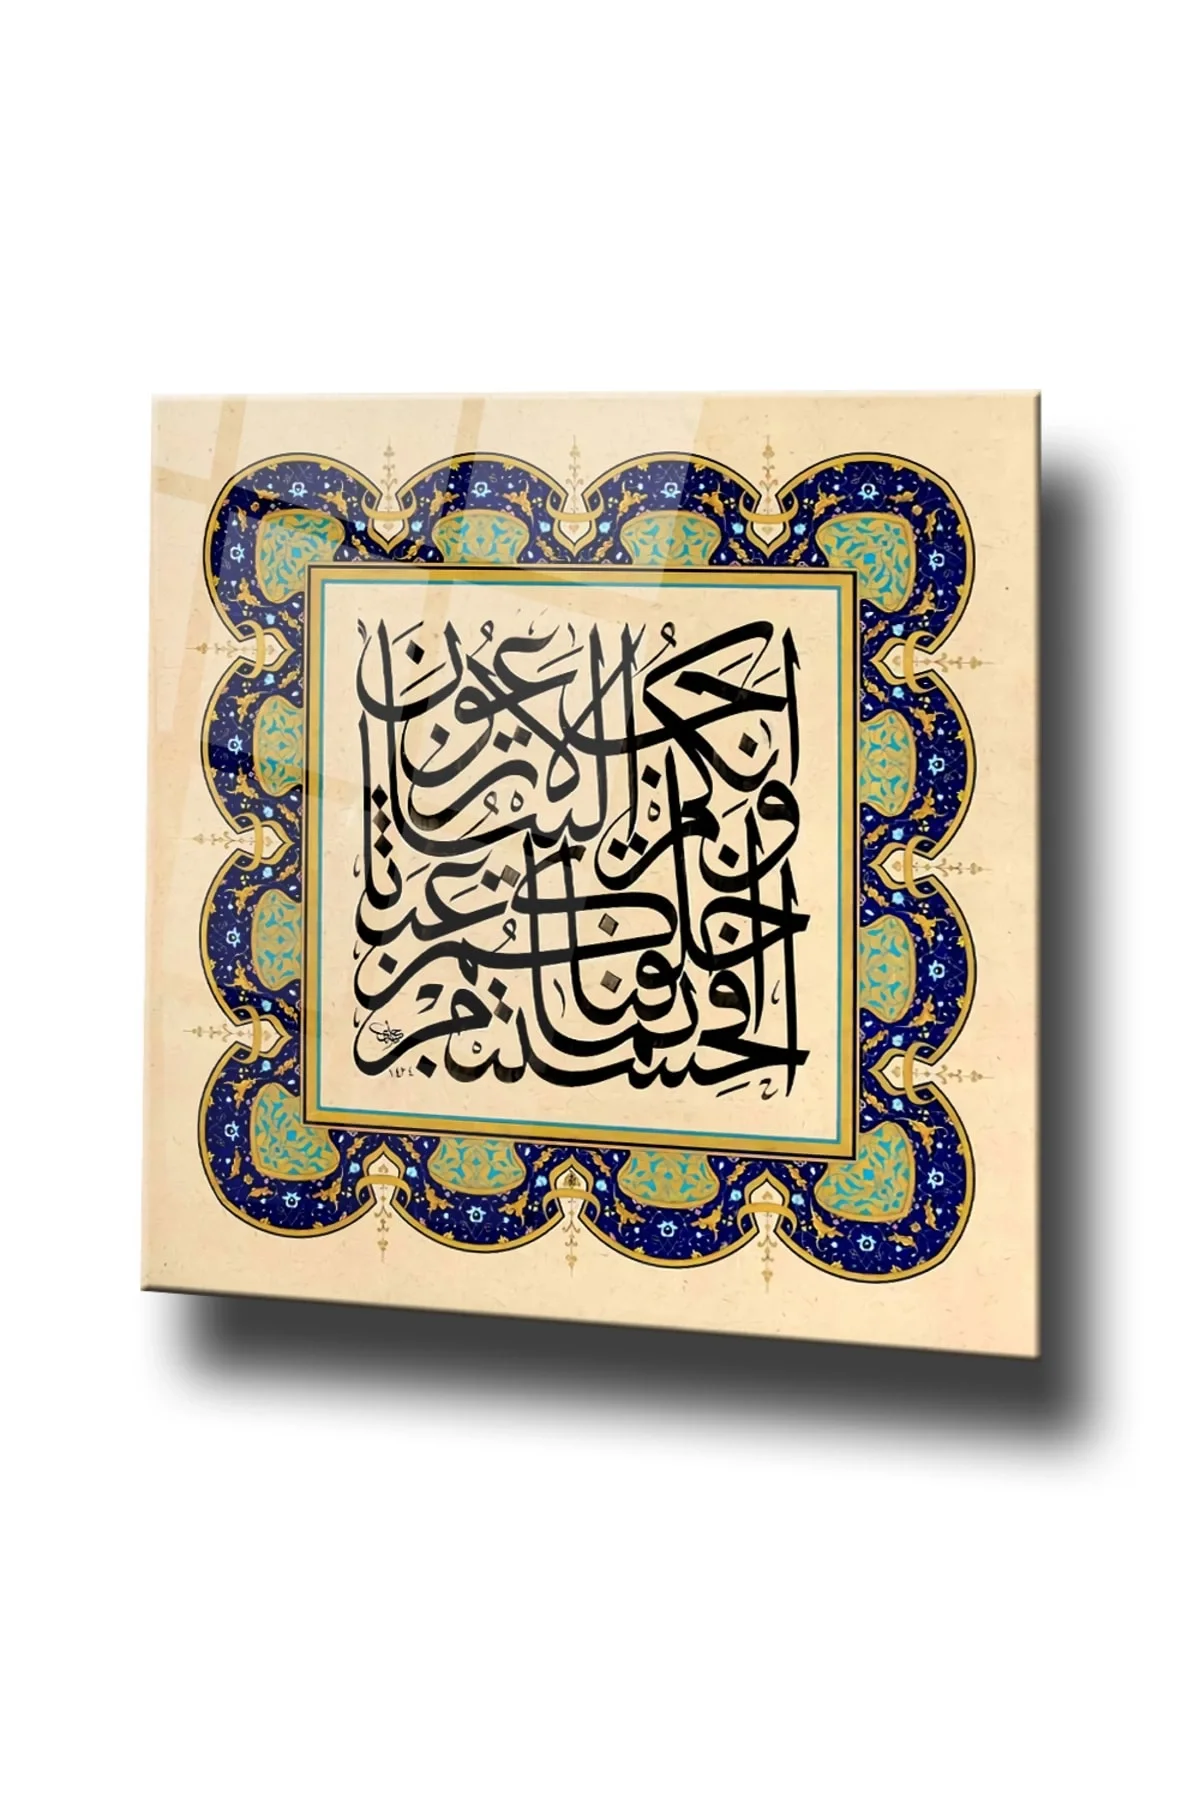 افحسبتم
انما خلقناكم عبثا
وانكم الينا
لا ترجعون
١٤٢٤